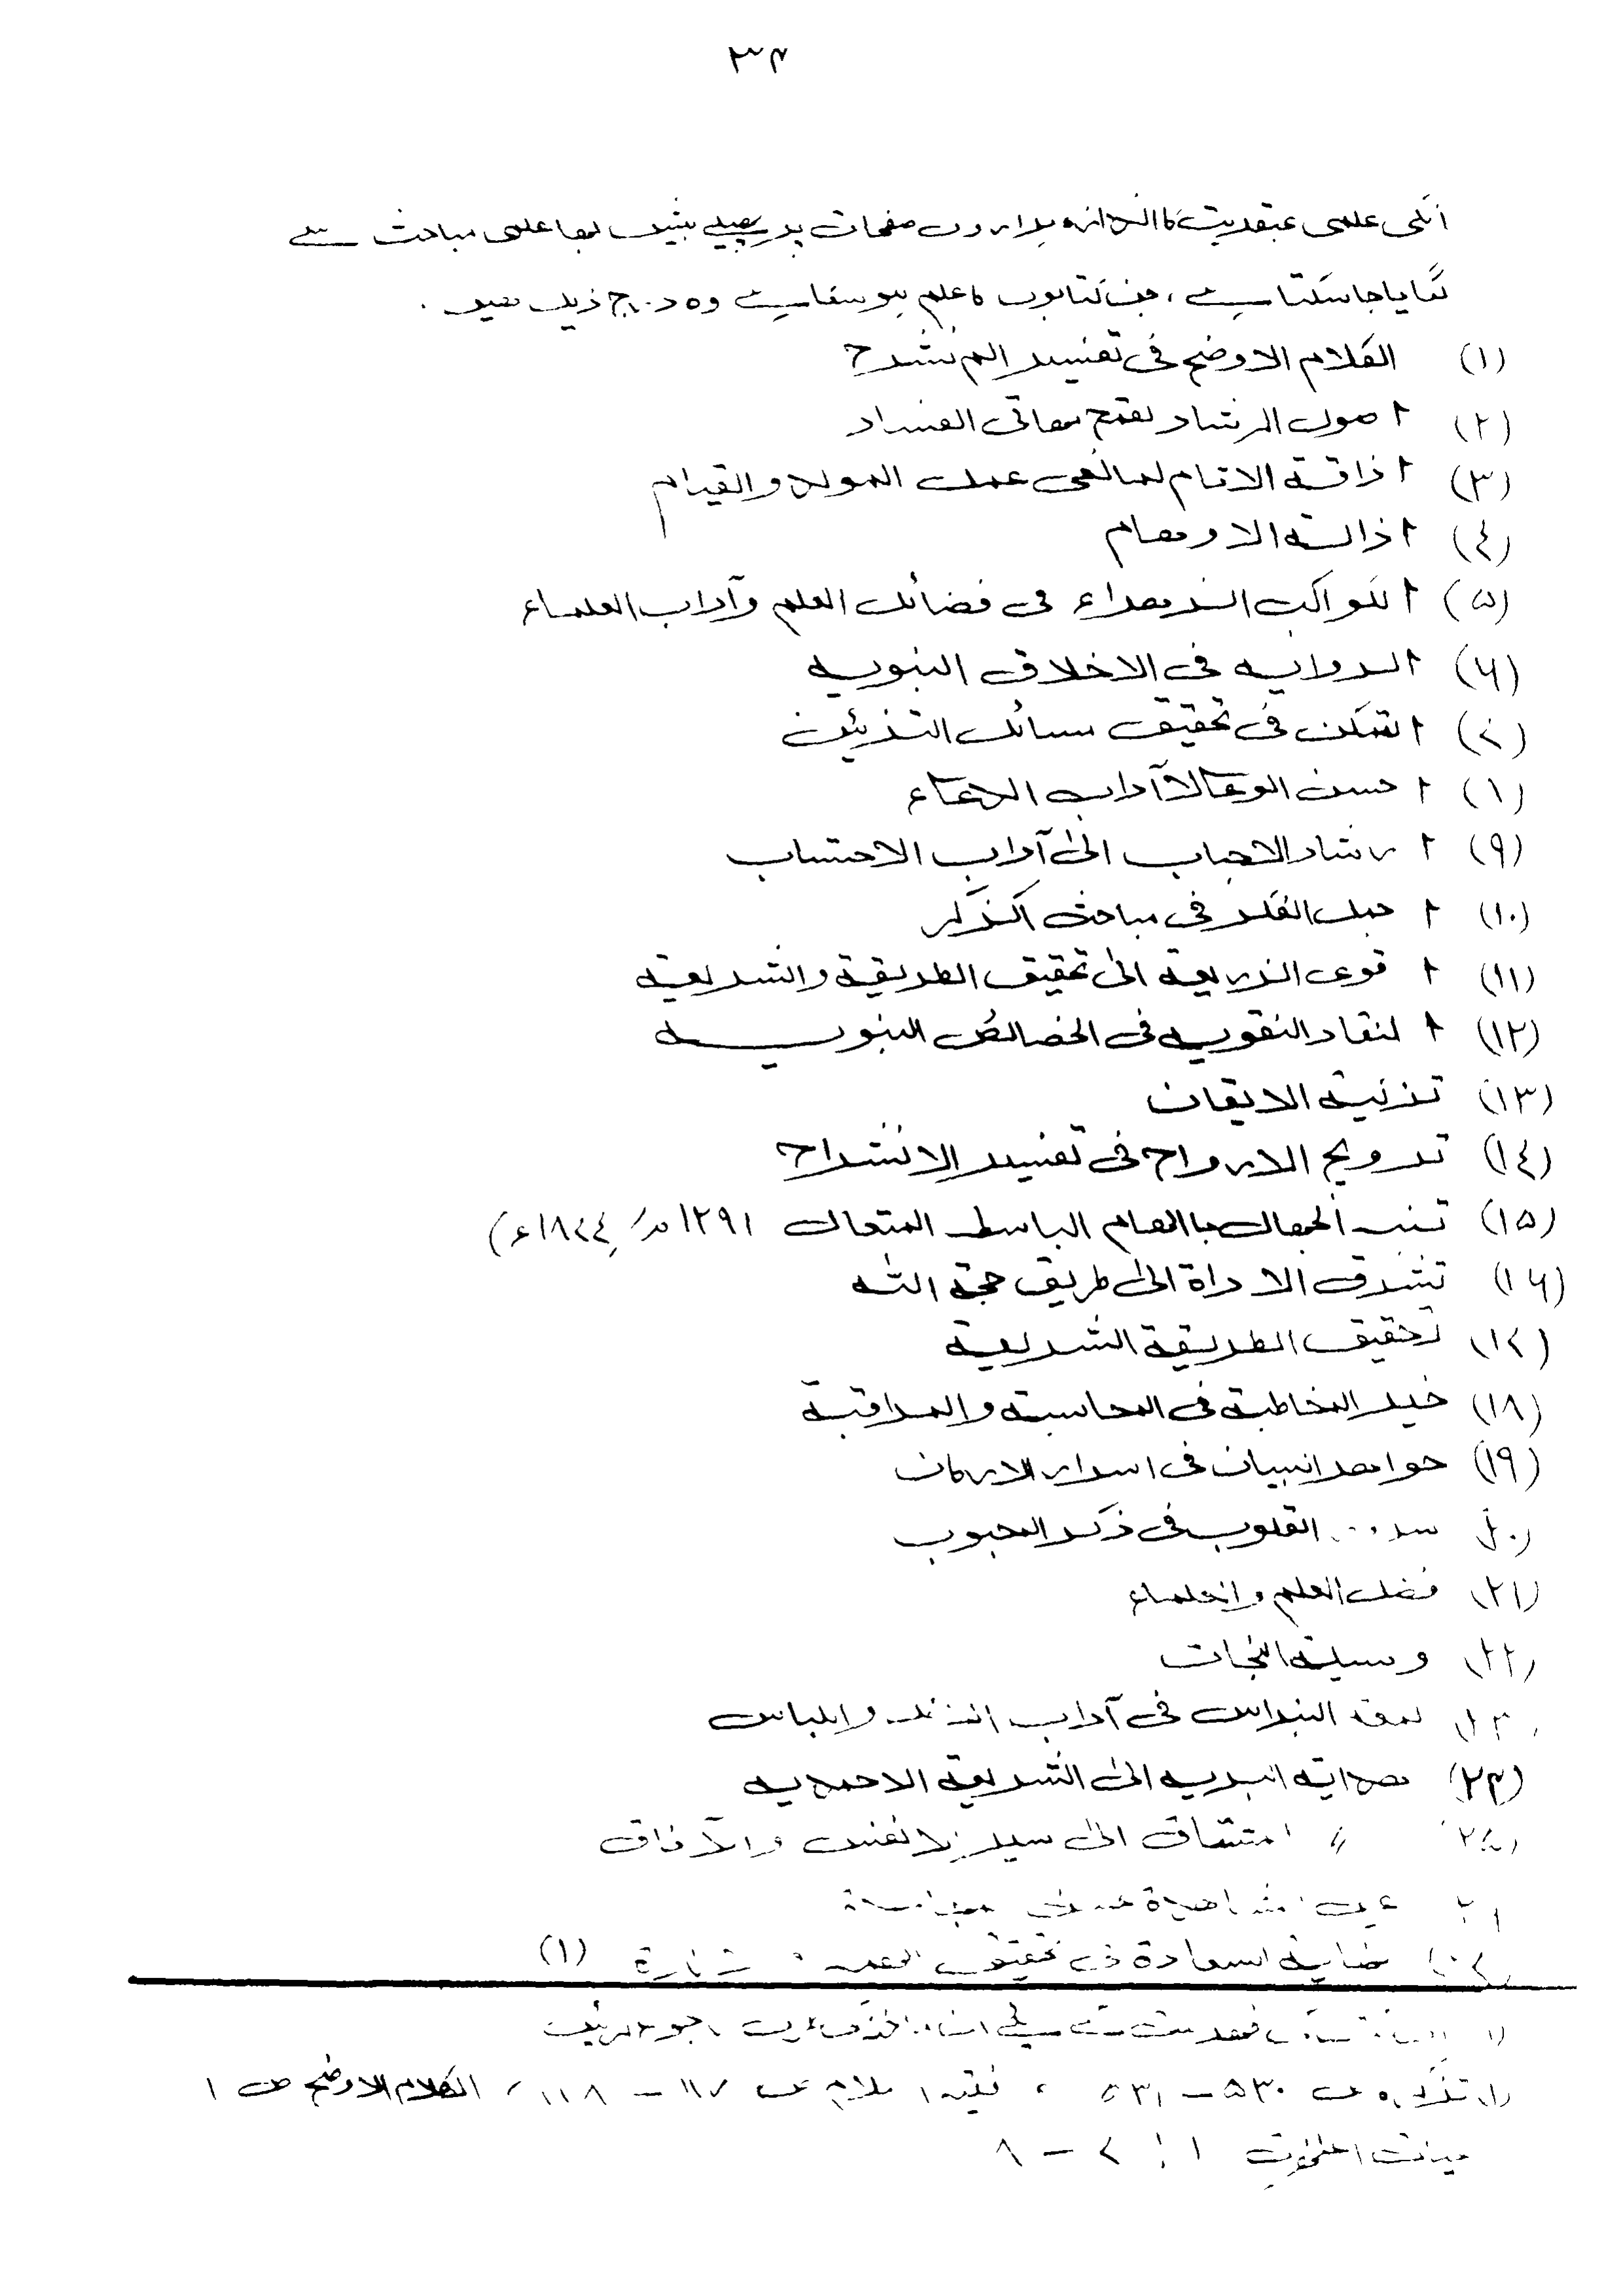 ۳۴
انکی علمی عبقریت کا اندازہ ہزاروں صفحات پر پھیلے بیش بہا علمی مباحث سے
لگایا جا سکتا ہے، جن کتابوں کا علم ہو سکا ہے وہ درج ذیل ھیں .
(۱) الکلام الاوضح فی تفسیر الم نشرح
(۲) اصول الرشاد لقمع مبانی الفساد
(۳) اذاقۃ الاثام لمانعی عمل المولد والقیام
(٤) ازالۃ الاوھام
(۵) الکواکب الزھراء فی فضائل العلم وآداب العلماء
(۶) الروایہ فی الاخلاق النبویہ
(۷) التمکن فی تحقیق مسائل التزئین
(۸) احسن الوعا لآداب الدعاء
(۹) ارشاد الاحباب الی آداب الاحتساب
(۱۰) اجمل الفکر فی مباحث الذکر
(۱۱) اقوی الذریعۃ الی تحقیق الطریقۃ والشریعۃ
(۱۲) النقادۃ النقویہ فی الخصائص النبویہ
(۱۳) تزکیۃ الایقان
(۱٤) ترویح الارواح فی تفسیر الانشراح
(۱۵) الجھال باالھام الباسط المتعال ۱۲۹۱ھ/ ۱۸۷٤ء)
(۱۶) تشوق الاداۃ الی طریق محبۃ اللہ
(۱۷) تحقیق الطریقۃ الشریعۃ
(۱۸) خیر المخاطبۃ فی المحاسبۃ والمراقبۃ
(۱۹) جواھر البیان فی اسرار الارکان
(۲۰) القلوب فی ذکر المحبوب
(۲۱) فضل العلم والعلماء
(۲۲) وسیلۃ النجات
لمعۃ النبراس فی آداب واللباس
(۲۴) ھدایۃ البریہ الی الشریعۃ الاحمدیہ
اشتیاق الی سیر الانفس والآفاق
السعادۃ فی تحقیق (۱)
(۱) تذکرہ ص ۵۳۰ – ۵۳۱ ، فقیہ اسلام ص ۱۱۷ – ۱۱۸، الکلام الاوضح ص ۱
حیات اعلحضرت ۱ : ۷ – ۸